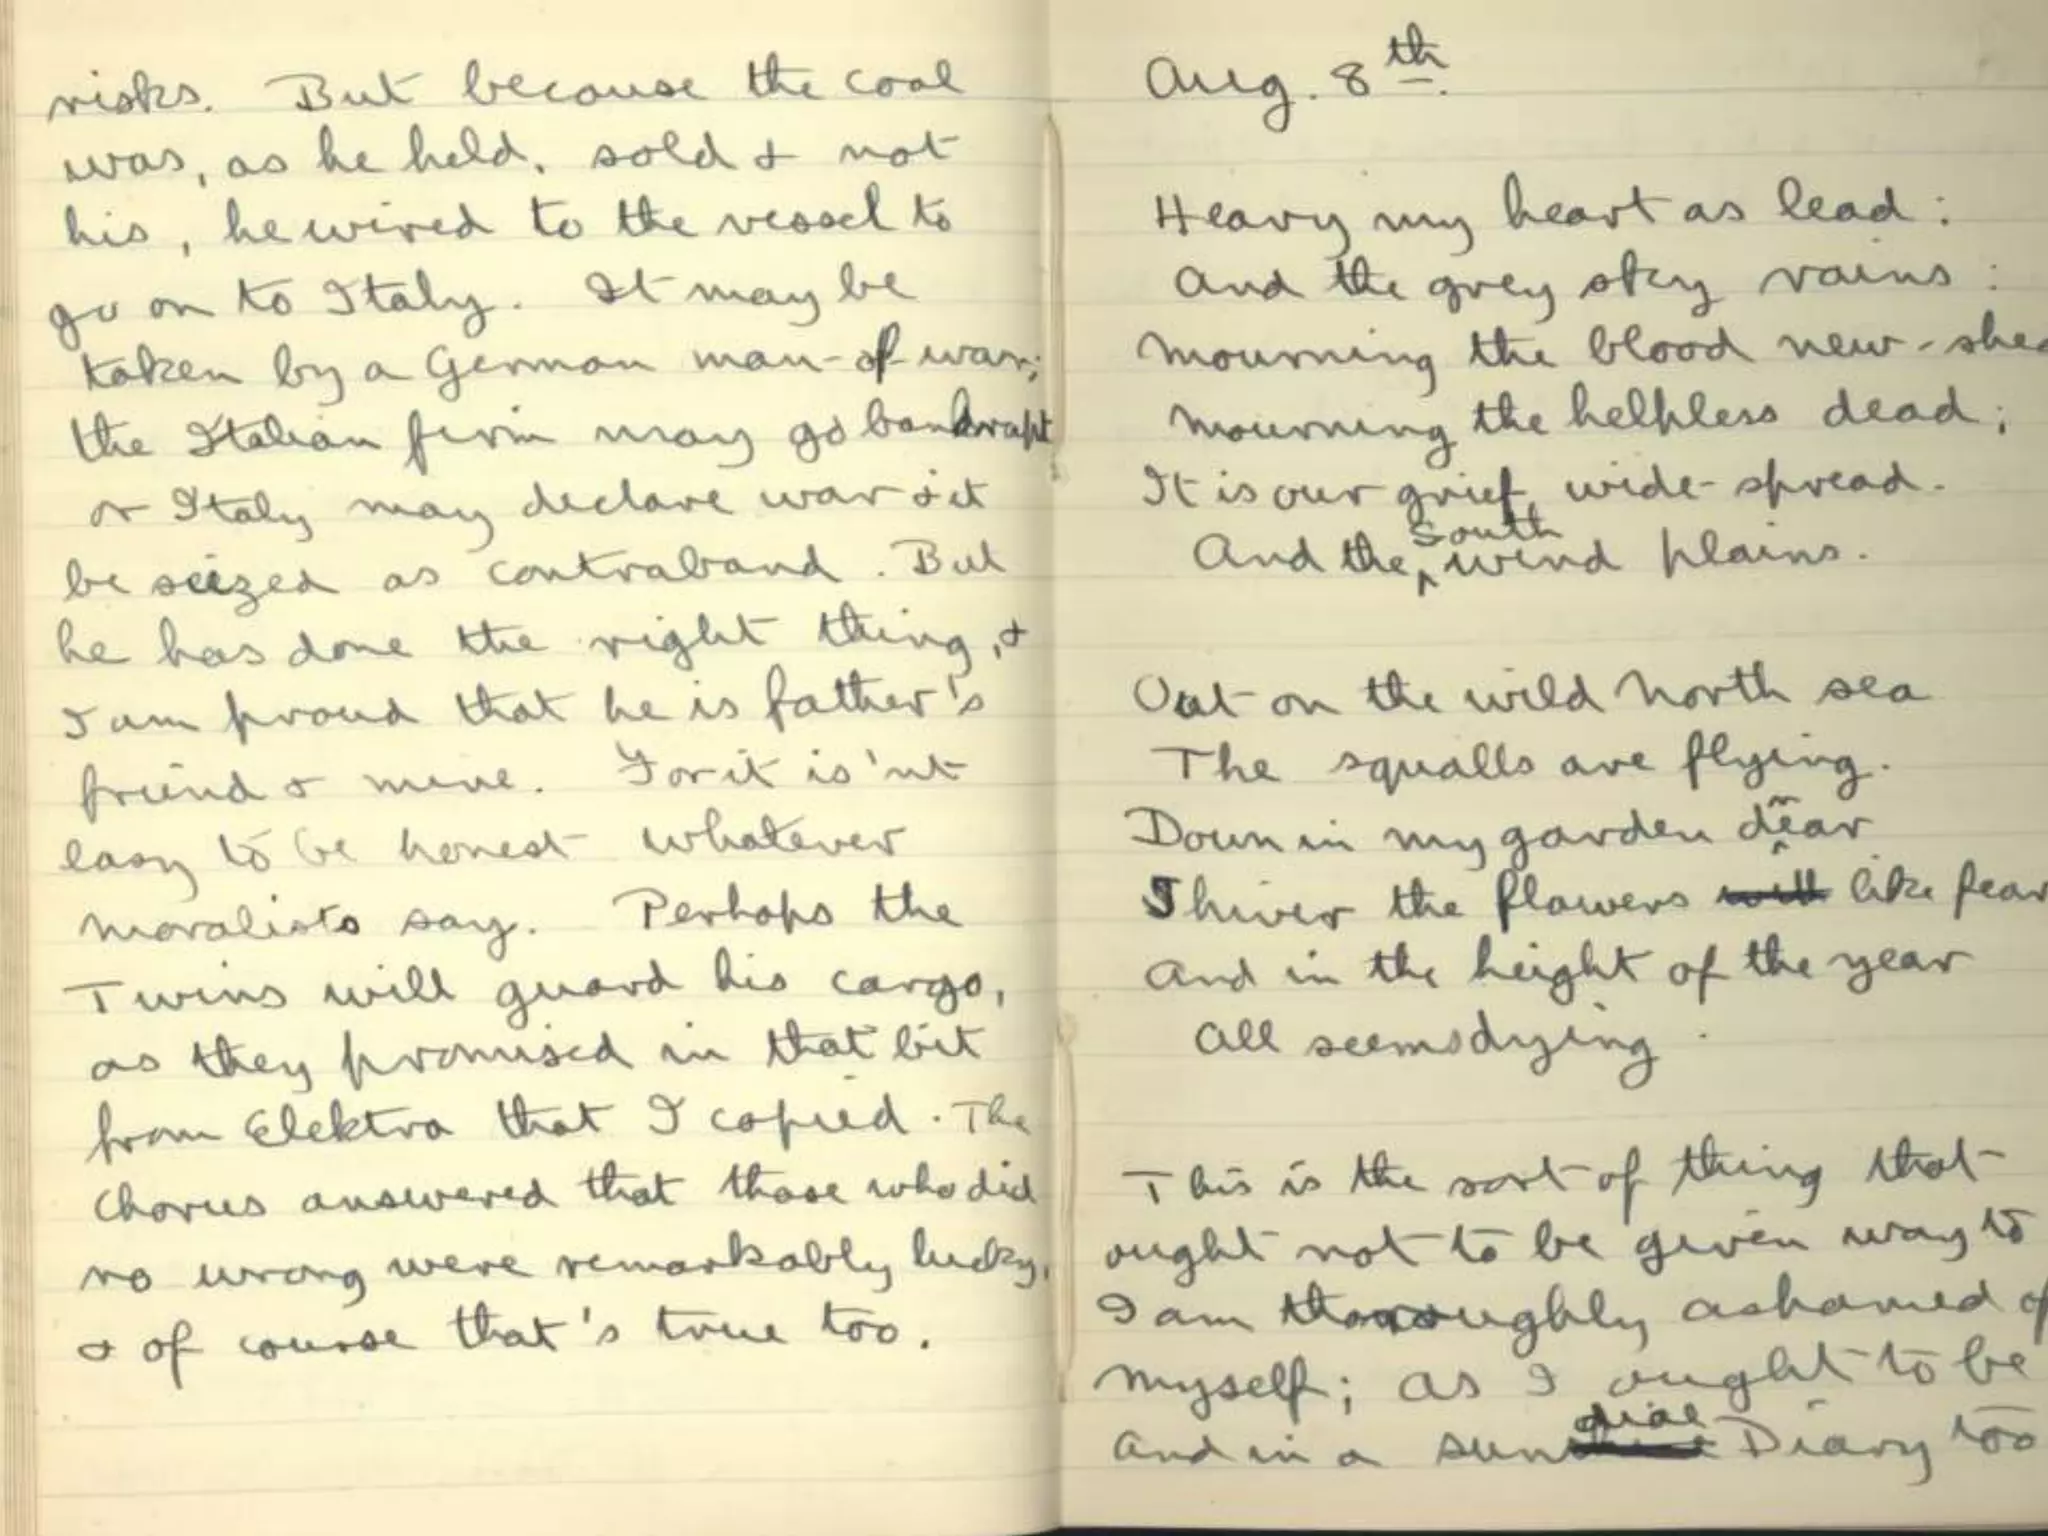 risks. But because the coal
was, as he held, sold & not
his, he wired to the vessel to
go on to Italy. It may be
taken by a German man-of-war;
the Italian firm may go bankrupt
or Italy may declare war & it
be seized as contraband. But
he has done the right thing, &
I am proud that he is father's
friend & mine. For it is'nt
easy to be honest whatever
moralists say. Perhaps the
Twins will guard his cargo,
as they promised in that bit
from Elektra that I copied. The
Chorus answered that those who did
no wrong were remarkably lucky,
& of course that's true too.
Aug. 8th.
Heavy my heart as lead:
And the grey sky rains:
Mourning the blood new-shed
Mourning the helpless dead;
It is our grief, wide-spread.
And the South wind plains.
Out on the wild North sea
The squalls are flying.
Down in my garden dear
Shiver the flowers will like fear
And in the height of the year
All seems dying.
This is the sort of thing that
ought not to be given way to
I am thoroughly ashamed of
myself; as I ought to be
And in a sun dial Diary too